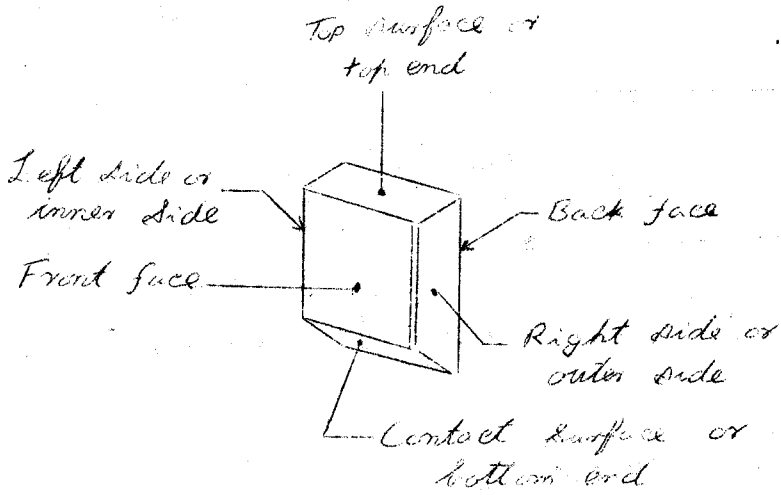 Top surface or
top end
Left side or
inner side
Back face
Front face
Right side or
outer side
Contact surface or
bottom end